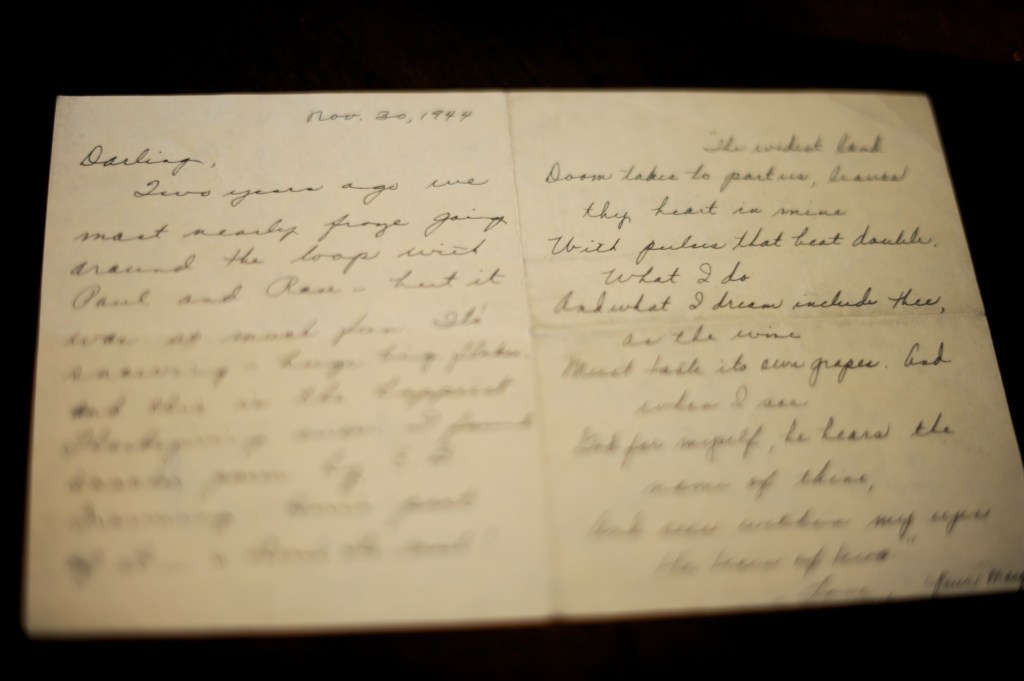 Nov. 30, 1944
Darling,
Two years ago we
most nearly froze going
around the loop with
Paul and Rose - but it
was so much fun. It's
snowing - huge big flakes
and this is the happiest
Thanksgiving
by E. B.
Browning
"The widest land
Doom takes to part us, leaves
thy heart in mine
With pulses that beat double.
What I do
And what I dream include thee,
as the wine
Must taste its own grapes. And
when I sue
God for myself, he hears the
name of thine,
And sees within my eyes
the tears of two"
Love,